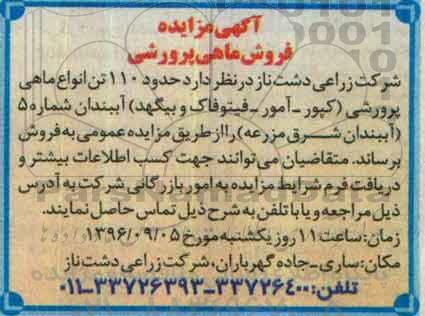 آگهی مزایده
فروش ماهی پرورشی
شرکت زراعی دشت ناز در نظر دارد حدود ۱۱۰ تن انواع ماهی
پرورشی (کپور ـ آمور ـ فیتوفاک و بیگهد) آببندان شماره ۵
(آببندان شـــرق مزرعه) را از طریق مزایده عمومی به فروش
برساند. متقاضیان می‌توانند جهت کسب اطلاعات بیشتر و
دریافت فرم شرایط مزایده به امور بازرگانی شرکت به آدرس
ذیل مراجعه و یا با تلفن به شرح ذیل تماس حاصل نمایند.
زمان: ساعت ۱۱ روز یکشنبه مورخ ۱۳۹۶/۰۹/۰۵
مکان: ساری ـ جاده گهرباران، شرکت زراعی دشت ناز
تلفن: ۳۳۷۲۶۴۰۰ ـ ۳۳۷۲۶۳۹۳ ـ ۰۱۱